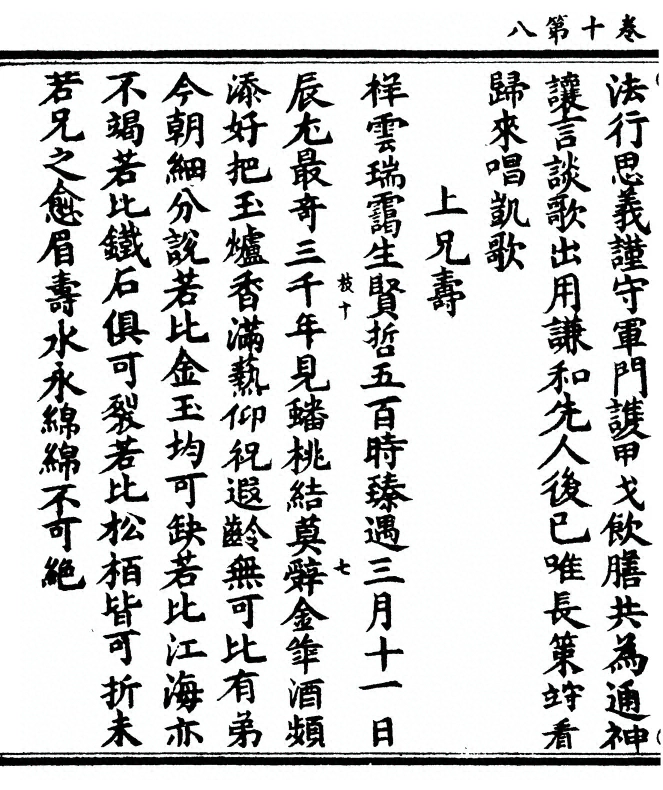 卷十第八
法行思義謹守軍門護甲戈飲膳共為通神
讓言談歌出用謙和先人後已唯長策竚看
歸來唱凱歌
上兄壽
祥雲瑞靄生賢哲五百時臻遇三月十一日
枝十 七
辰尤最奇三千年見蟠桃結莫辭金斝酒頻
添好把玉爐香滿爇仰祝遐齡無可比有弟
今朝細分說若比金玉均可缺若比江海亦
不竭若比鐵石俱可裂若比松栢皆可折未
若兄之愈眉壽水永綿綿不可絕